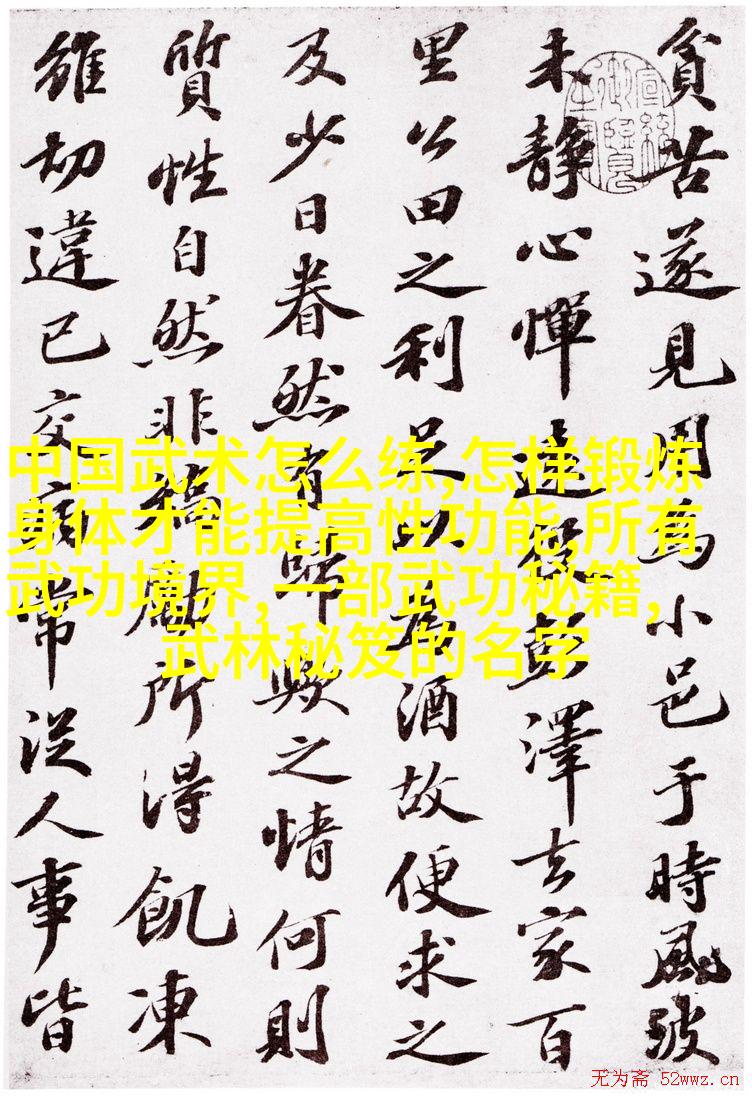 貧苦遂見用為小邑于時風波
未靜心憚遠役彭澤去家百
里公田之利足以為酒故便求之
及少日眷然有歸歟之情何則
質性自然非矯勵所得飢凍
雖切違已交病常從人事皆
中国武术怎么练,怎样锻炼
身体才能提高性功能,所有
武功境界,一部武功秘籍,
武林秘笈的名字
无为斋 52wwz.cn